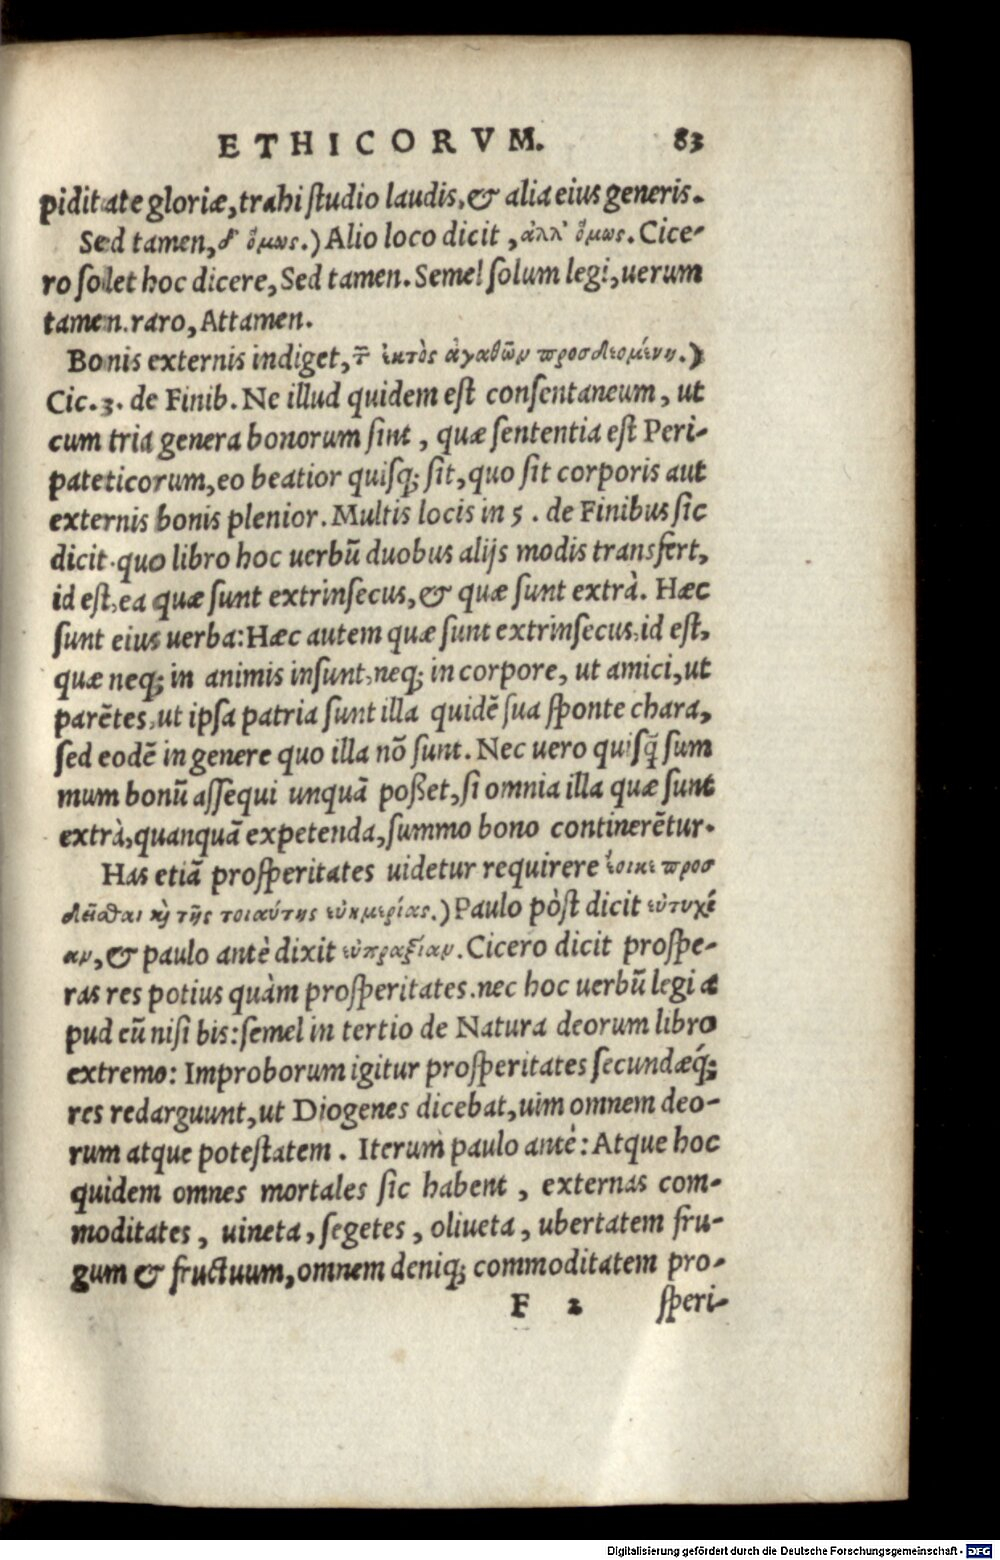 ETHICORVM. 83
piditate gloriæ, trahi ſtudio laudis, & alia eius generis.
Sed tamen, δ' ὅμως.) Alio loco dicit, ἀλλ' ὅμως. Cice-
ro ſolet hoc dicere, Sed tamen. Semel ſolum legi, uerum
tamen. raro, Attamen.
Bonis externis indiget, τ͂ ἐκτὸς ἀγαθῶν προσδεομένη.)
Cic. 3. de Finib. Ne illud quidem eſt conſentaneum, ut
cum tria genera bonorum ſint, quæ ſententia eſt Peri-
pateticorum, eo beatior quiſq; ſit, quo ſit corporis aut
externis bonis plenior. Multis locis in 5. de Finibus ſic
dicit. quo libro hoc uerbũ duobus alijs modis transfert,
id eſt, ea quæ ſunt extrinſecus, & quæ ſunt extrà. Hæc
ſunt eius uerba: Hæc autem quæ ſunt extrinſecus, id eſt,
quæ neq; in animis inſunt, neq; in corpore, ut amici, ut
parẽtes, ut ipſa patria ſunt illa quidẽ ſua ſponte chara,
ſed eodẽ in genere quo illa nõ ſunt. Nec uero quiſq̃ ſum
mum bonũ aſſequi unquã poßet, ſi omnia illa quæ ſunt
extrà, quanquã expetenda, ſummo bono continerẽtur.
Has etiã proſperitates uidetur requirere ἔοικε προσ
δεῖσθαι καὶ τῆς τοιαύτης εὐημερίας.) Paulo pòſt dicit εὐτυχί
αν, & paulo antè dixit εὐπραξίαν. Cicero dicit proſpe-
ras res potius quàm proſperitates. nec hoc uerbũ legi a
pud eũ niſi bis: ſemel in tertio de Natura deorum libro
extremo: Improborum igitur proſperitates ſecundæq́;
res redarguunt, ut Diogenes dicebat, uim omnem deo-
rum atque poteſtatem. Iterum paulo antè: Atque hoc
quidem omnes mortales ſic habent, externas com-
moditates, uineta, ſegetes, oliueta, ubertatem fru-
gum & fructuum, omnem deniq; commoditatem pro-
F 2 ſperi-
Digitalisierung gefördert durch die Deutsche Forschungsgemeinschaft - DFG